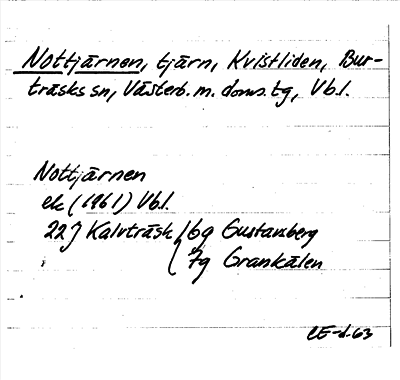 Nottjärnen, tjärn, Kvistliden, Bur-
träsks sn, Västerb. m. doms.tg, Vb.l.
Nottjärnen
ek (1961) Vb.l.
22J Kalvträsk 6g Gustavsberg
7g Grankälen
CE-d-63